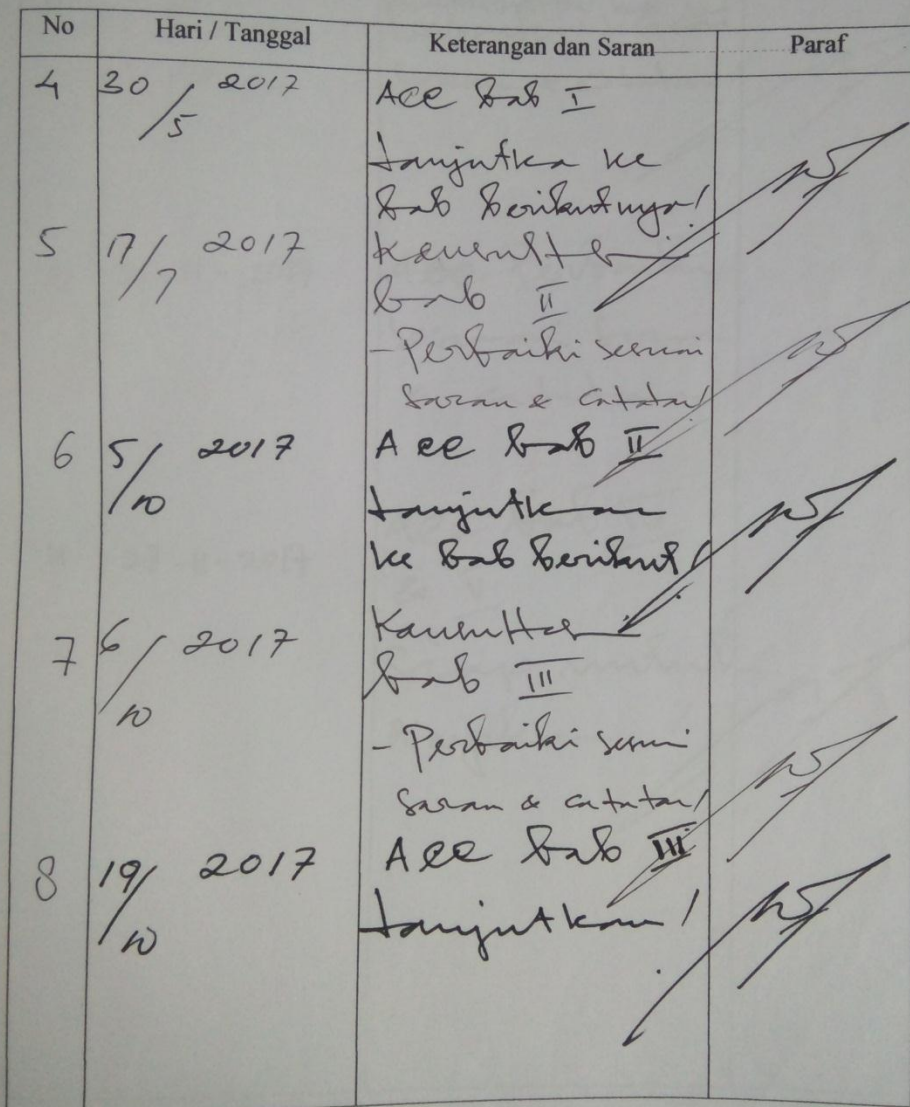 No Hari / Tanggal Keterangan dan Saran Paraf
4 30/5 2017 Acc bab I
Lanjutka ke
bab berikutnya!
5 17/7 2017 Konsultas
bab II
- Perbaiki sesuai
saran & catatan!
6 5/10 2017 Acc bab II
Lanjutkan
ke bab berikut!
7 6/10 2017 Konsultas
bab III
- Perbaiki sesuai
saran & catatan!
8 19/10 2017 Acc bab III
Lanjutkan!